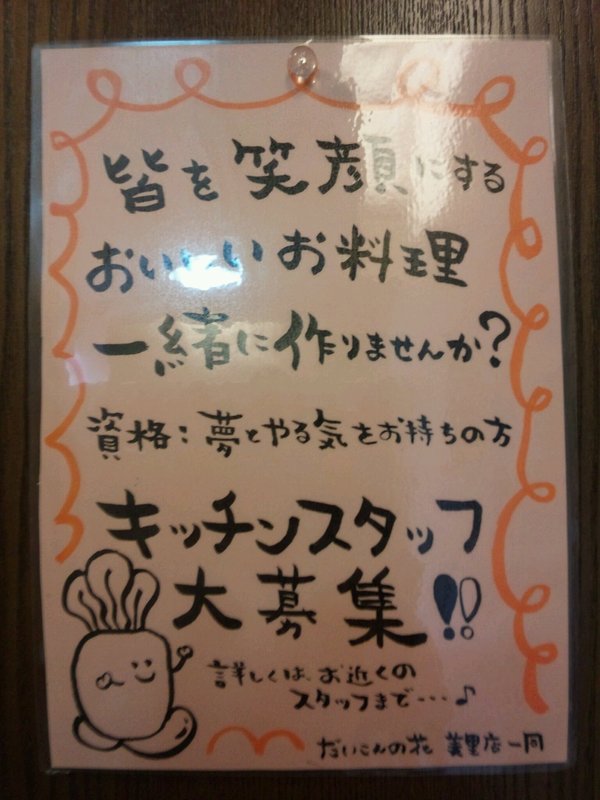 皆を笑顔にする
おいしいお料理
一緒に作りませんか?
資格:夢とやる気をお持ちの方
キッチンスタッフ
大募集!!
詳しくは、お近くの
スタッフまで・・・♪
だいこんの花 美里店一同